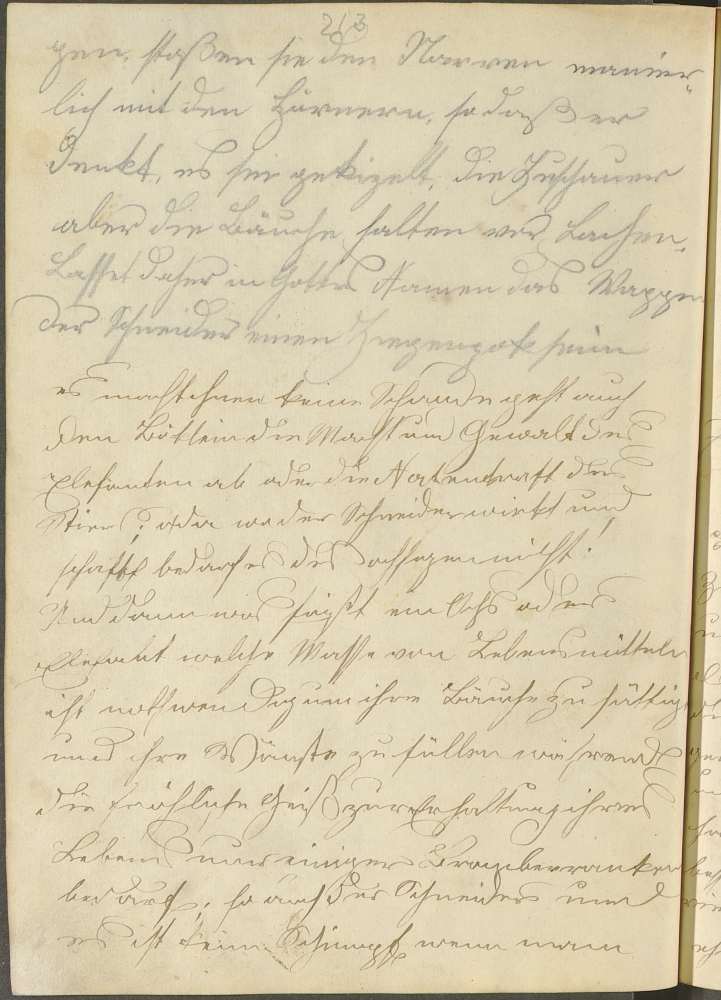 213
gen, stoßen sie den Narren manier-
lich mit den Hörnern, so daß er
denkt, es sei gekizelt, die Zuschauer
aber die Bäuche halten vor Lachen.
Lasset daher in Gottes Namen das Wappen
der Schneider einen Ziegenbok sein
es macht ihnen keine Schande geht auch
den Böklein die Macht und Gewalt des
Elefanten ab oder die Nakenkraft des
Stiers, oder wo der Schneider wirkt und
schafft bedarf es des nicht!
Und dann was frißt ein Ochs oder
Elefant welche Masse von Lebensmitteln
ist nothwendig um ihre Bäuche zu sättigen
und ihre Wänste zu füllen während
die fröhliche Geiß zur Erhaltung ihres
Lebens nur einiger Brombeerranken
bedarf; so auch der Schneider und
es ist kein Schimpf wenn man